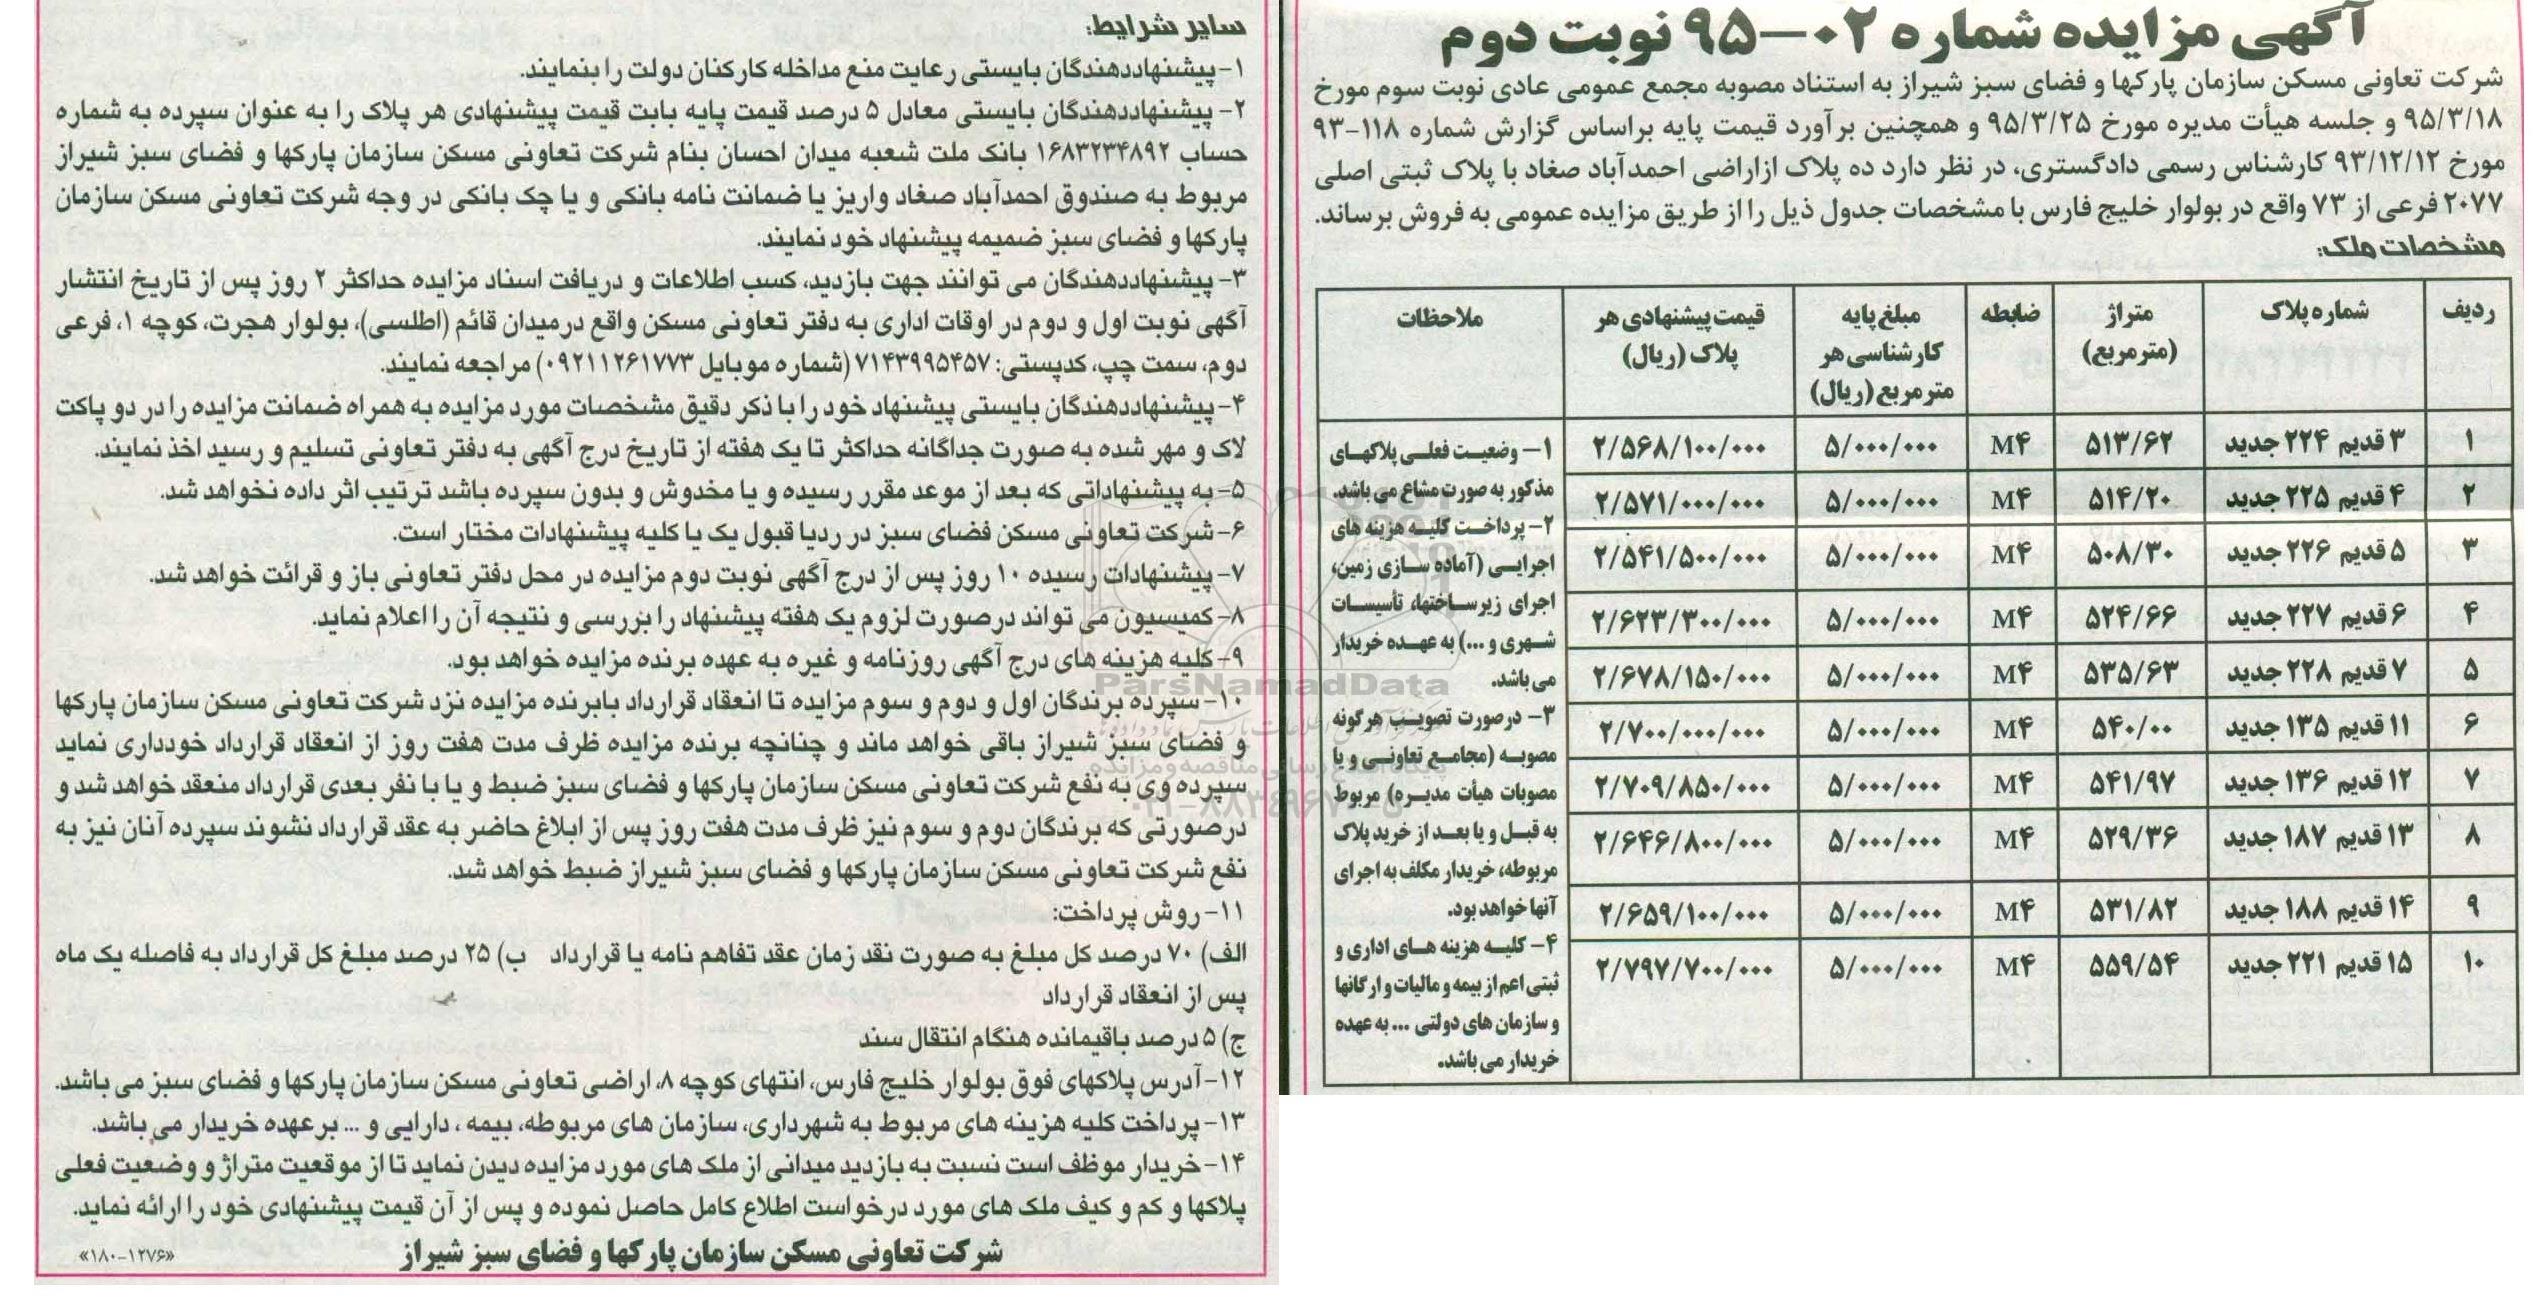 آگهی مزایده شماره ۰۲-۹۵ نوبت دوم
شرکت تعاونی مسکن سازمان پارکها و فضای سبز شیراز به استناد مصوبه مجمع عمومی عادی نوبت سوم مورخ
۹۵/۳/۱۸ و جلسه هیأت مدیره مورخ ۹۵/۳/۲۵ و همچنین برآورد قیمت پایه براساس گزارش شماره ۱۱۸-۹۳
مورخ ۹۳/۱۲/۱۲ کارشناس رسمی دادگستری، در نظر دارد ده پلاک ازاراضی احمدآباد صغاد با پلاک ثبتی اصلی
۲۰۷۷ فرعی از ۷۳ واقع در بولوار خلیج فارس با مشخصات جدول ذیل را از طریق مزایده عمومی به فروش برساند.
مشخصات ملک:
ردیف شماره پلاک متراژ (مترمربع) ضابطه مبلغ پایه کارشناسی هر مترمربع (ریال) قیمت پیشنهادی هر پلاک (ریال) ملاحظات
۱ ۳ قدیم ۲۲۴ جدید ۵۱۳/۶۲ M۴ ۵/۰۰۰/۰۰۰ ۲/۵۶۸/۱۰۰/۰۰۰
۲ ۴ قدیم ۲۲۵ جدید ۵۱۴/۲۰ M۴ ۵/۰۰۰/۰۰۰ ۲/۵۷۱/۰۰۰/۰۰۰
۳ ۵ قدیم ۲۲۶ جدید ۵۰۸/۳۰ M۴ ۵/۰۰۰/۰۰۰ ۲/۵۴۱/۵۰۰/۰۰۰
۴ ۶ قدیم ۲۲۷ جدید ۵۲۴/۶۶ M۴ ۵/۰۰۰/۰۰۰ ۲/۶۲۳/۳۰۰/۰۰۰
۵ ۷ قدیم ۲۲۸ جدید ۵۳۵/۶۳ M۴ ۵/۰۰۰/۰۰۰ ۲/۶۷۸/۱۵۰/۰۰۰
۶ ۱۱ قدیم ۱۳۵ جدید ۵۴۰/۰۰ M۴ ۵/۰۰۰/۰۰۰ ۲/۷۰۰/۰۰۰/۰۰۰
۷ ۱۲ قدیم ۱۳۶ جدید ۵۴۱/۹۷ M۴ ۵/۰۰۰/۰۰۰ ۲/۷۰۹/۸۵۰/۰۰۰
۸ ۱۳ قدیم ۱۸۷ جدید ۵۲۹/۳۶ M۴ ۵/۰۰۰/۰۰۰ ۲/۶۴۶/۸۰۰/۰۰۰
۹ ۱۴ قدیم ۱۸۸ جدید ۵۳۱/۸۲ M۴ ۵/۰۰۰/۰۰۰ ۲/۶۵۹/۱۰۰/۰۰۰
۱۰ ۱۵ قدیم ۲۲۱ جدید ۵۵۹/۵۴ M۴ ۵/۰۰۰/۰۰۰ ۲/۷۹۷/۷۰۰/۰۰۰
۱- وضعیت فعلی پلاکهای
مذکور به صورت مشاع می باشد.
۲- پرداخت کلیه هزینه های
اجرایی (آماده سازی زمین،
اجرای زیرساختها، تأسیسات
شهری و ...) به عهده خریدار
می باشد.
۳- درصورت تصویب هرگونه
مصوبه (مجامع تعاونی و یا
مصوبات هیأت مدیره) مربوط
به قبل و یا بعد از خرید پلاک
مربوطه، خریدار مکلف به اجرای
آنها خواهد بود.
۴- کلیه هزینه های اداری و
ثبتی اعم از بیمه و مالیات و ارگانها
و سازمان های دولتی ... به عهده
خریدار می باشد.
سایر شرایط:
۱- پیشنهاددهندگان بایستی رعایت منع مداخله کارکنان دولت را بنمایند.
۲- پیشنهاددهندگان بایستی معادل ۵ درصد قیمت پایه بابت قیمت پیشنهادی هر پلاک را به عنوان سپرده به شماره
حساب ۱۶۸۳۲۳۴۸۹۲ بانک ملت شعبه میدان احسان بنام شرکت تعاونی مسکن سازمان پارکها و فضای سبز شیراز
مربوط به صندوق احمدآباد صغاد واریز یا ضمانت نامه بانکی و یا چک بانکی در وجه شرکت تعاونی مسکن سازمان
پارکها و فضای سبز ضمیمه پیشنهاد خود نمایند.
۳- پیشنهاددهندگان می توانند جهت بازدید، کسب اطلاعات و دریافت اسناد مزایده حداکثر ۲ روز پس از تاریخ انتشار
آگهی نوبت اول و دوم در اوقات اداری به دفتر تعاونی مسکن واقع درمیدان قائم (اطلسی)، بولوار هجرت، کوچه ۱، فرعی
دوم، سمت چپ، کدپستی: ۷۱۴۳۹۹۵۴۵۷ (شماره موبایل ۰۹۲۱۱۲۶۱۷۷۳) مراجعه نمایند.
۴- پیشنهاددهندگان بایستی پیشنهاد خود را با ذکر دقیق مشخصات مورد مزایده به همراه ضمانت مزایده را در دو پاکت
لاک و مهر شده به صورت جداگانه حداکثر تا یک هفته از تاریخ درج آگهی به دفتر تعاونی تسلیم و رسید اخذ نمایند.
۵- به پیشنهاداتی که بعد از موعد مقرر رسیده و یا مخدوش و بدون سپرده باشد ترتیب اثر داده نخواهد شد.
۶- شرکت تعاونی مسکن فضای سبز در ردیا قبول یک یا کلیه پیشنهادات مختار است.
۷- پیشنهادات رسیده ۱۰ روز پس از درج آگهی نوبت دوم مزایده در محل دفتر تعاونی باز و قرائت خواهد شد.
۸- کمیسیون می تواند درصورت لزوم یک هفته پیشنهاد را بررسی و نتیجه آن را اعلام نماید.
۹- کلیه هزینه های درج آگهی روزنامه و غیره به عهده برنده مزایده خواهد بود.
۱۰- سپرده برندگان اول و دوم و سوم مزایده تا انعقاد قرارداد بابرنده مزایده نزد شرکت تعاونی مسکن سازمان پارکها
و فضای سبز شیراز باقی خواهد ماند و چنانچه برنده مزایده ظرف مدت هفت روز از انعقاد قرارداد خودداری نماید
سپرده وی به نفع شرکت تعاونی مسکن سازمان پارکها و فضای سبز ضبط و یا با نفر بعدی قرارداد منعقد خواهد شد و
درصورتی که برندگان دوم و سوم نیز ظرف مدت هفت روز پس از ابلاغ حاضر به عقد قرارداد نشوند سپرده آنان نیز به
نفع شرکت تعاونی مسکن سازمان پارکها و فضای سبز شیراز ضبط خواهد شد.
۱۱- روش پرداخت:
الف) ۷۰ درصد کل مبلغ به صورت نقد زمان عقد تفاهم نامه یا قرارداد ب) ۲۵ درصد مبلغ کل قرارداد به فاصله یک ماه
پس از انعقاد قرارداد
ج) ۵ درصد باقیمانده هنگام انتقال سند
۱۲- آدرس پلاکهای فوق بولوار خلیج فارس، انتهای کوچه ۸، اراضی تعاونی مسکن سازمان پارکها و فضای سبز می باشد.
۱۳- پرداخت کلیه هزینه های مربوط به شهرداری، سازمان های مربوطه، بیمه ، دارایی و ... برعهده خریدار می باشد.
۱۴- خریدار موظف است نسبت به بازدید میدانی از ملک های مورد مزایده دیدن نماید تا از موقعیت متراژ و وضعیت فعلی
پلاکها و کم و کیف ملک های مورد درخواست اطلاع کامل حاصل نموده و پس از آن قیمت پیشنهادی خود را ارائه نماید.
شرکت تعاونی مسکن سازمان پارکها و فضای سبز شیراز
«۱۸۰-۱۲۷۶»
ParsNamadData